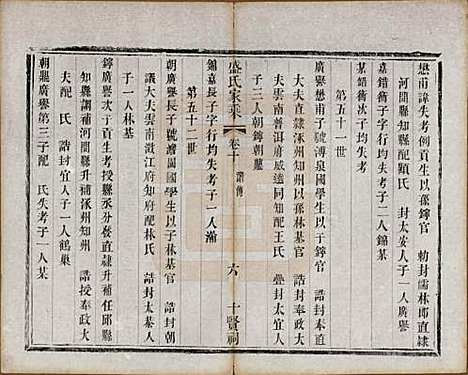 懋甫諱失考例貢生以孫錚官　勅封儒林郎直隸
河間縣知縣配顏氏　封太安人子一人廣譽
嘉錯衡子字行均失考子一人錦綦
某錯衡子次子均失考
第五十一世
廣譽懋甫子號溥泉國學生以子錚官　誥封奉直
大夫直隸涿州知州以孫林基官　誥封朝議大
夫雲南普洱府威遠同知配王氏　疊封太宜人
子三人朝錚朝鼉
盛氏家乘　卷十　譜傳　六　十賢祠
錦綦長子字行均失考子一人瀛
第五十二世
朝廣譽長子號澹園國學生以子林基官　誥封朝
議大夫雲南澂江府知府配林氏　誥封太恭人
子一人林基
錚廣譽次子貢生考授縣丞分發直隸升補任邱縣
知縣調補河間縣升補涿州知州　誥授奉政大
夫配　氏　誥封宜人子一人鶴巢
朝鼉廣譽第三子配　氏失考子一人某